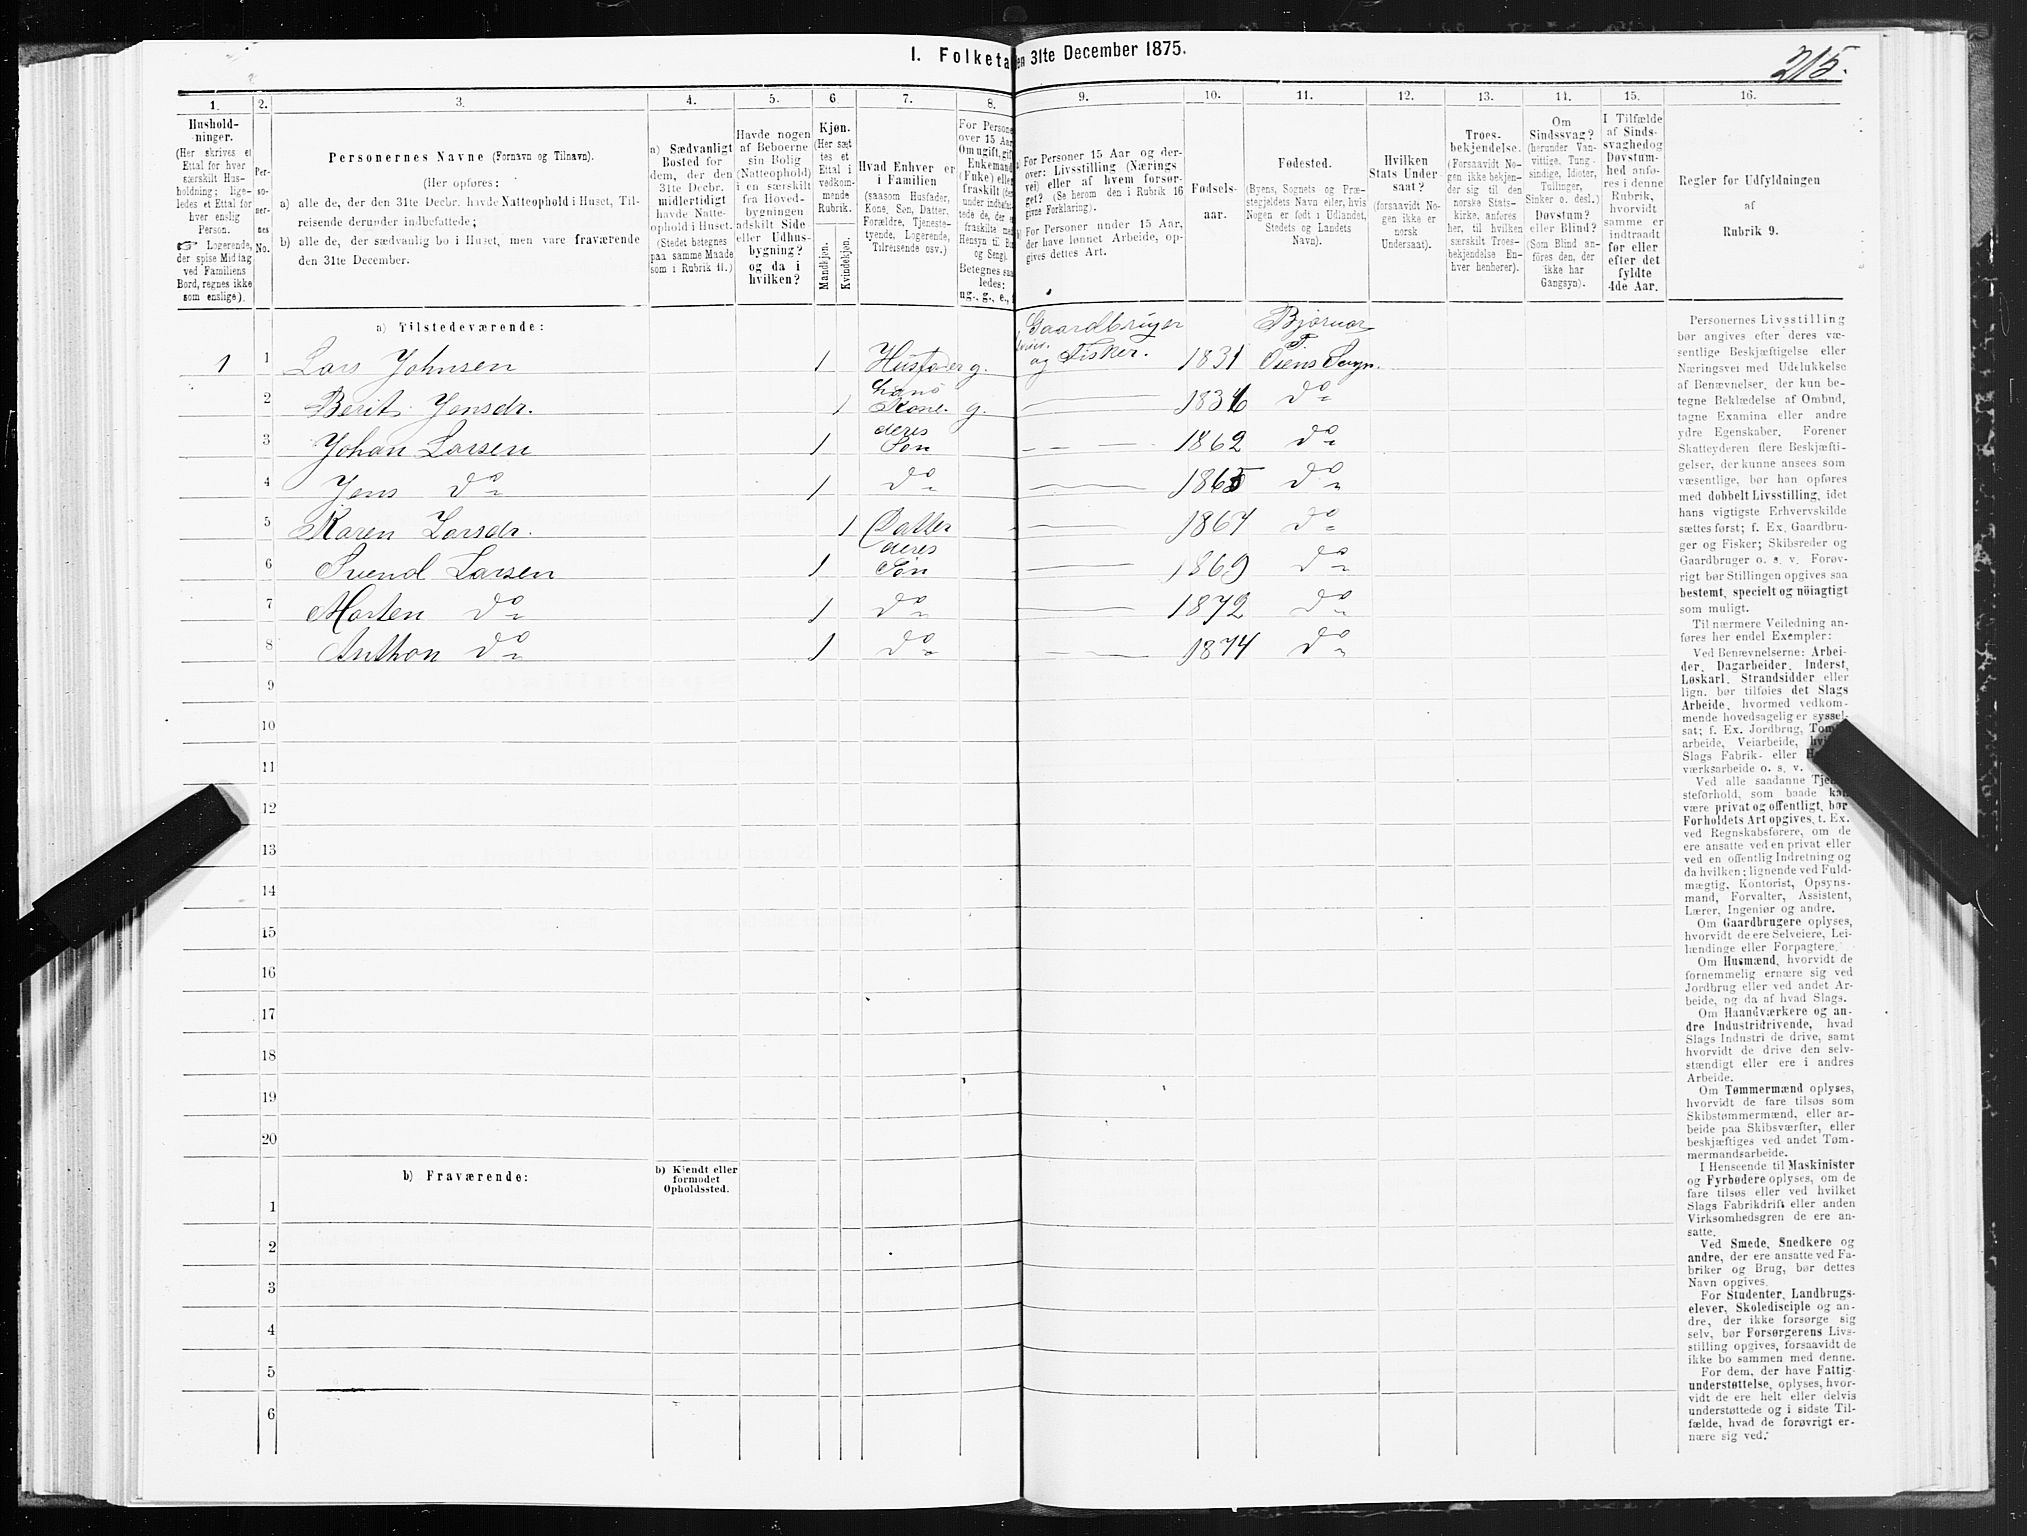 I. Folketa en 31te December 1875.
215.
1. 2. 3. 4. 5. 6 7. 8. 9. 10. 11. 12. 13. 14. 15. 16.
Hushold-
ninger.
(Her skrives et
Ettal for hver
særskilt Hus-
holdning; lige-
ledes et Ettal for
hver enslig
Person.
☞ Logerende,
der spise Middag
ved Familiens
Bord, regnes ikke
som enslige).
Per-
so-
ner-
nes
No.
Personernes Navne (Fornavn og Tilnavn).
(Her opføres:
a) alle de, der den 31te Decbr. havde Natteophold i Huset, Til-
reisende derunder indbefattede;
b) alle de, der sædvanlig bo i Huset, men vare fraværende
den 31te December.
a) Sædvanligt
Bosted for
dem, der den
31te Decbr.
midlertidigt
havde Natte-
ophold i Huset.
(Stedet betegnes
paa samme Maade
som i Rubrik 11.)
Havde nogen
af Beboerne
sin Bolig
(Natteophold)
i en særskilt
fra Hoved-
bygningen
adskilt Side
eller Udhus-
bygning?
og da i
hvilken?
Kjøn.
(Her sæt-
tes et
Ettal i
vedkom-
mende
Rubrik.
Mandkjøn.
Kvindekjøn.
Hvad Enhver er
i Familien
(saasom Husfader,
Kone, Søn, Datter,
Forældre, Tjeneste-
tyende, Logerende,
Tilreisende osv.)
For Persone
over 15 Aar
Om ugift, gif
Enkemand
(Enke) elle
fraskilt
Betegnes saa
ledes:
ug., g., e.,
For Personer 15 Aar og der-
over: Livsstilling (Nærings
vei) eller af hvem forsør-
get? (Se herom den i Rubrik 16
givne Forklaring).
For Personer under 15 Aar,
der have lønnet Arbeide, op-
gives dettes Art.
Fødsels-
aar.
Fødested.
(Byens, Sognets og Præ-
stegjeldets Navn eller, hvis
Nogen er født i Udlandet,
Stedets og Landets
Navn).
Hvilken
Stats Under-
saat?
(forsaavidt ikke er
norsk
Undersaat).
Troes-
bekjendelse.
(Forsaavidt No-
gen ikke bekjen-
der sig til den
norske Stats-
kirke, anføres
her, til hvilken
særskilt Troes-
bekjendelse En-
hver henhører).
Om
Sindssvag?
(herunder Van-
vittige, Tung-
sindige, Idioter,
Tullinger,
Sinker o. desl.)
Døvstum?
eller Blind?
(Som Blind an-
føres den, der
ikke har
Gangsyn).
I Tilfælde
af Sinds-
svaghed og
Døvstum-
hed anfø-
res i denne
Rubrik,
hvorvidt
samme er
indtraadt
før eller
efter det
fyldte
4de Aar.
Regler for Udfyldningen
af
Rubrik 9.
a) Tilstedeværende:
1 1 Lars Johnsen 1 Husfader g. Gaardbruger og Fisker. 1831 Bjørnør Osens Sogn.
2 Berit Jensdr. 1 hans Kone g. 1836 do
3 Johan Larsen 1 deres Søn 1862 do
4 Jens do 1 do 1865 do
5 Karen Larsdr. 1 Datter 1867 do
6 Svend Larsen 1 deres Søn 1869 do
7 Morten do 1 do 1872 do
8 Anthon do 1 do 1874 do
9
10
11
12
13
14
15
16
17
18
19
20
b) Fraværende:
b) Kjendt eller
formodet
Opholdssted.
1
2
3
4
5
6
Personernes Livsstilling
bør angives efter deres væ-
sentlige Beskjæftigelse eller
Næringsvei med Udelukkelse
af Benævnelser, der kun be-
tegne Beklædelse af Ombud,
tagne Examina eller andre
ydre Egenskaber. Forener
Skatteyderen flere Beskjæfti-
gelser, der kunne ansees som
væsentlige, bør han opføres
med dobbelt Livsstilling, idet
hans vigtigste Erhvervskilde
sættes først; f. Ex. Gaardbru-
ger og Fisker; Skibsreder og
Gaardbruger o. s. v. Forøv-
rigt bør Stillingen opgives saa
bestemt, specielt og nöiagtigt
som muligt.
Til nærmere Veiledning an-
føres her endel Exempler:
Ved Benævnelserne: Arbei-
der, Dagarbeider, Inderst,
Løskarl, Strandsidder eller
lign. bør tilføies det Slags
Arbeide, hvormed vedkom-
mende hovedsagelig er syssel-
sat; f. Ex. Jordbrug, Tøm
arbeide, Veiarbeide, hvi
Slags Fabrik- eller
værksarbeide o. s. v.
Ved alle saadanne Tje
steforhold, som baade kan
være privat og offentligt, bør
Forholdets Art opgives, t. Ex.
ved Regnskabsførere, om de
ere ansatte ved en privat eller
ved en offentlig Indretning og
da hvilken; lignende ved Fuld-
mægtig, Kontorist, Opsyns-
mand, Forvalter, Assistent,
Lærer, Ingeniør og andre.
Om Gaardbrugere oplyses,
hvorvidt de ere Selveiere, Lei-
lændinge eller Forpagtere.
Om Husmænd, hvorvidt de
fornemmelig ernære sig ved
Jordbrug eller ved andet Ar-
beide, og da af hvad Slags.
Om Haandværkere og an-
dre Industridrivende, hvad
Slags Industri de drive, samt
hvorvidt de drive den selv-
stændigt eller ere i andres
Arbeide.
Om Tømmermænd oplyses,
hvorvidt de fare tilsøs som
Skibstømmermænd, eller ar-
beide paa Skibsværfter, eller
beskjæftiges ved andet Tøm-
mermandsarbeide.
I Henseende til Maskinister
og Fyrbødere oplyses, om de
fare tilsøs eller ved hvilket
Slags Fabrikdrift eller anden
Virksomhedsgren de ere an-
satte.
Ved Smede, Snedkere og
andre, der ere ansatte ved Fa-
briker og Brug, bør dettes
Navn opgives.
For Studenter, Landbrugs-
elever, Skoledisciple og an-
dre, der ikke forsørge sig
selv, bør Forsørgerens Livs-
stilling opgives, forsaavidt de
ikke bo sammen med denne.
For dem, der have Fattig-
understøttelse, oplyses, hvor-
vidt de ere helt eller delvis
understøttede og i sidste Til-
fælde, hvad de forøvrigt er-
nære sig ved.